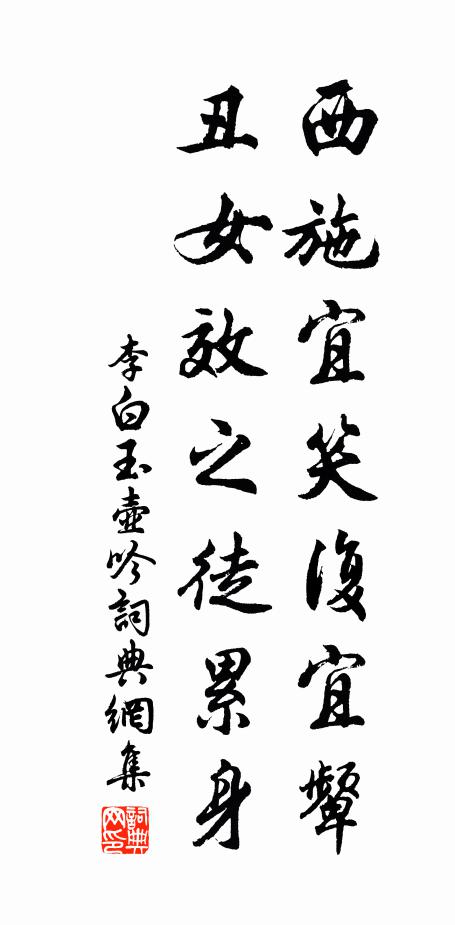 西施宜笑復宜顰
丑女效之徒累身
李白玉壺吟詞典網集
詞典
网印